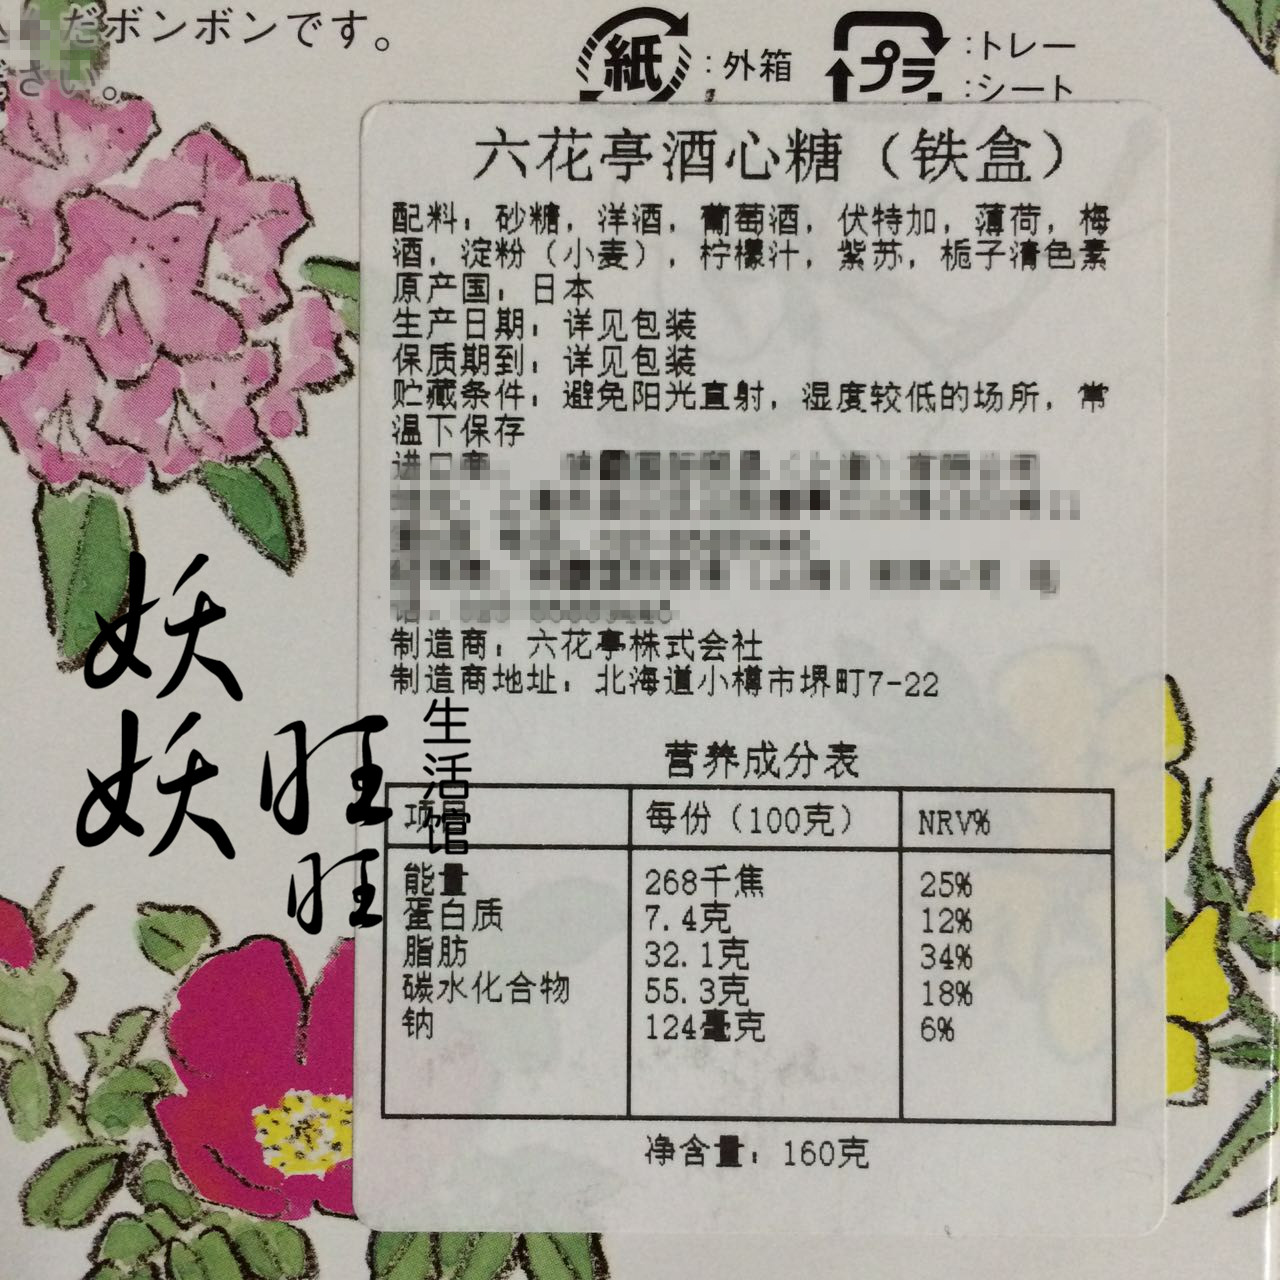 だボンボンです。
さい。
紙
：外箱
プラ
：トレー
：シート
六花亭酒心糖（铁盒）
配料：砂糖，洋酒，葡萄酒，伏特加，薄荷，梅
酒，淀粉（小麦），柠檬汁，紫苏，栀子清色素
原产国：日本
生产日期：详见包装
保质期到：详见包装
贮藏条件：避免阳光直射，湿度较低的场所，常
温下保存
制造商：六花亭株式会社
制造商地址：北海道小樽市堺町7-22
妖
妖旺
旺
生活馆
营养成分表
项目 每份（100克） NRV%
能量 268千焦 25%
蛋白质 7.4克 12%
脂肪 32.1克 34%
碳水化合物 55.3克 18%
钠 124毫克 6%
净含量：160克